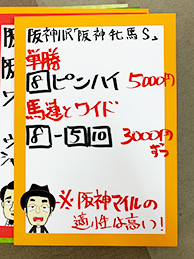 阪神11R「阪神牝馬S」
単勝
8 ピンハイ 5000円
馬連とワイド
8-5 10 3000円
ずつ
※阪神マイルの
適性は高い!